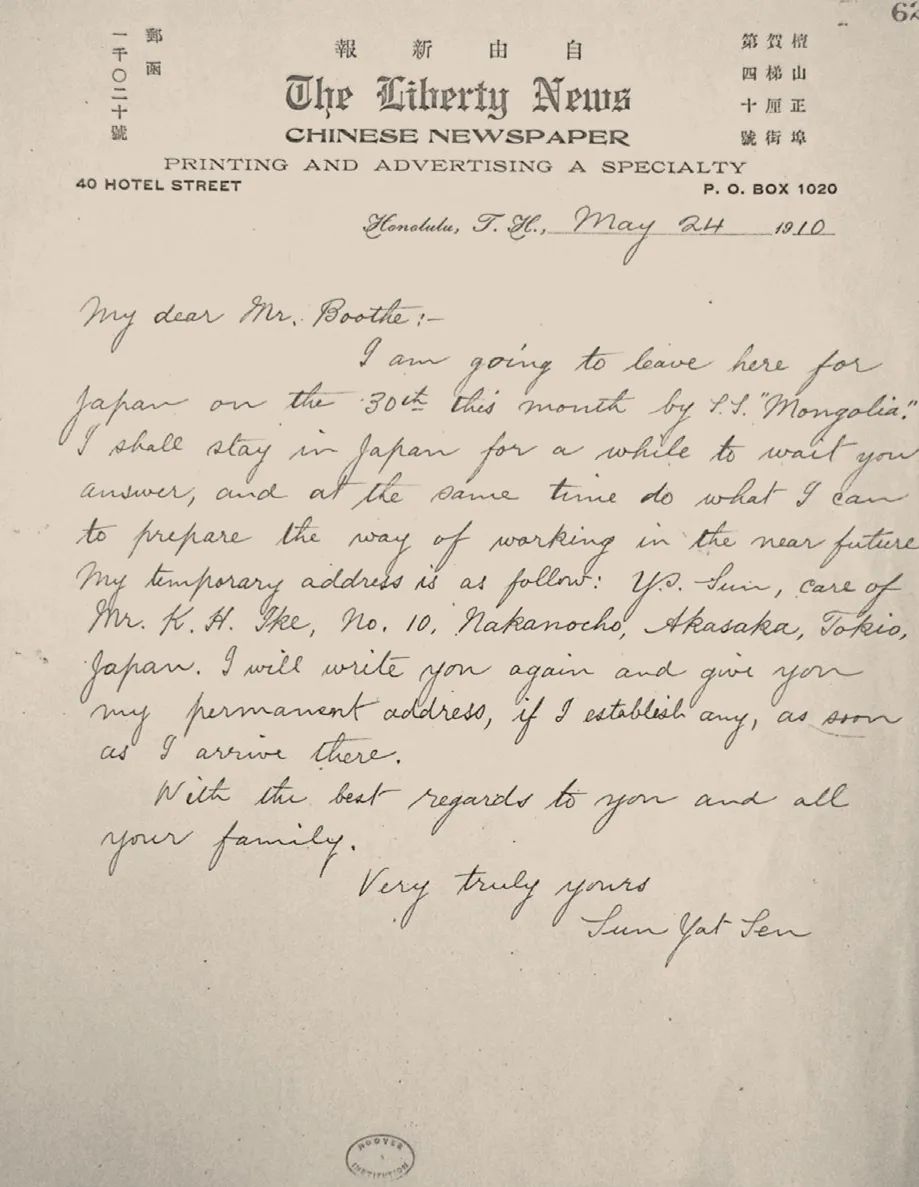 62
郵函
一千〇二十號
自由新報
檀山正埠
賀梯厘街
第四十號
The Liberty News
CHINESE NEWSPAPER
PRINTING AND ADVERTISING A SPECIALTY
40 HOTEL STREET
P. O. BOX 1020
Honolulu, T. H., May 24 1910
My dear Mr. Boothe:-
I am going to leave here for
Japan on the 30th this month by S.S. "Mongolia."
I shall stay in Japan for a while to wait you
answer, and at the same time do what I can
to prepare the way of working in the near future
My temporary address is as follow: Y.S. Sun, care of
Mr. K. H. Ike, No. 10, Nakanocho, Akasaka, Tokio,
Japan. I will write you again and give you
my permanent address, if I establish any, as soon
as I arrive there.
With the best regards to you and all
your family.
Very truly yours
Sun Yat Sen
HOOVER
INSTITUTION